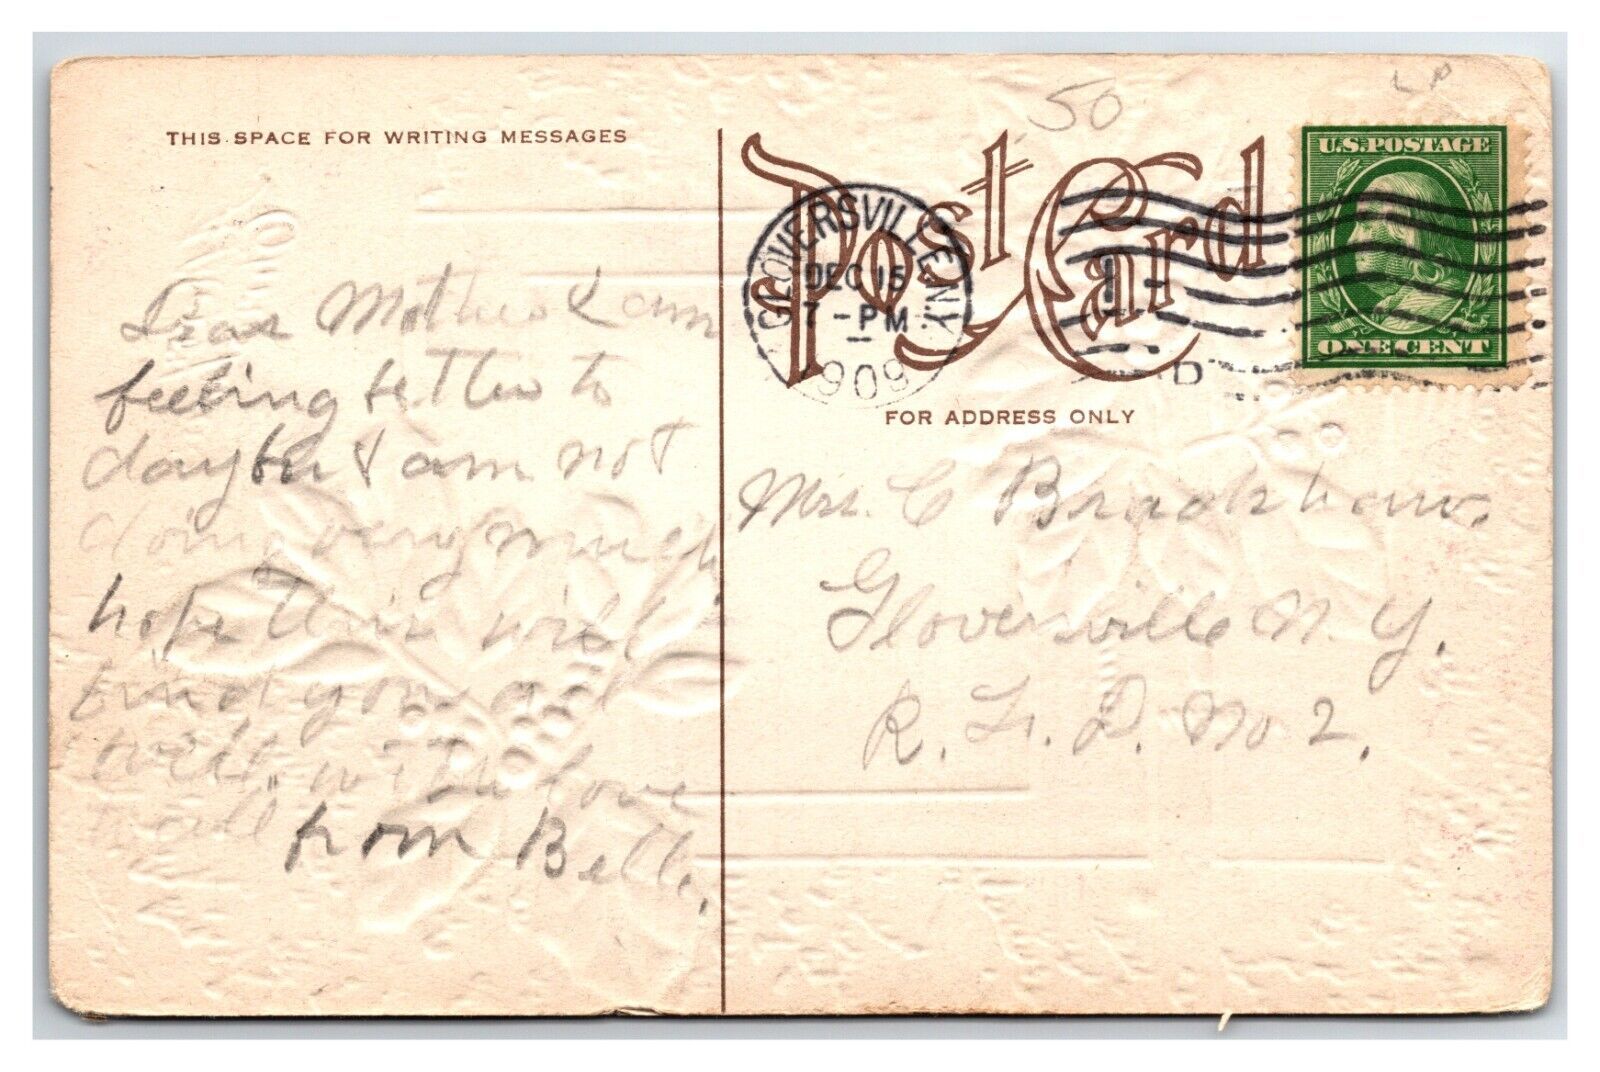 THIS SPACE FOR WRITING MESSAGES
Dear Mother I am
feeling better to
day but I am not
doing very much
hope this will
find you all
well, with love
to all
from Bell.
50
Post Card
GLOVERSVILLE, N.Y.
DEC 15
7 - PM
1909
1
D
U.S. POSTAGE
ONE CENT
FOR ADDRESS ONLY
Mrs. C Bradshaw.
Gloversville N. Y.
R. F. D. No 2.